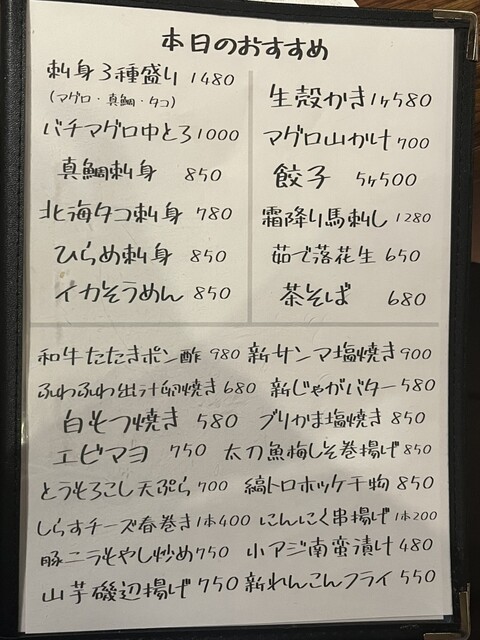 本日のおすすめ
刺身3種盛り 1480
(マグロ・真鯛・タコ)
バチマグロ中とろ 1000
真鯛刺身 850
北海タコ刺身 780
ひらめ刺身 850
イカそうめん 850
生殻かき 1ヶ580
マグロ山かけ 700
餃子 5ヶ500
霜降り馬刺し 1280
茹で落花生 650
茶そば 680
和牛たたきポン酢 980
ふわふわ出汁卵焼き 680
白もつ焼き 580
エビマヨ 750
とうもろこし天ぷら 700
しらすチーズ春巻き 1本400
豚ニラもやし炒め 750
山芋磯辺揚げ 750
新サンマ塩焼き 900
新じゃがバター 580
ブリかま塩焼き 850
太刀魚梅しそ巻揚げ 850
縞トロホッケ干物 850
にんにく串揚げ 1本200
小アジ南蛮漬け 480
新れんこんフライ 550